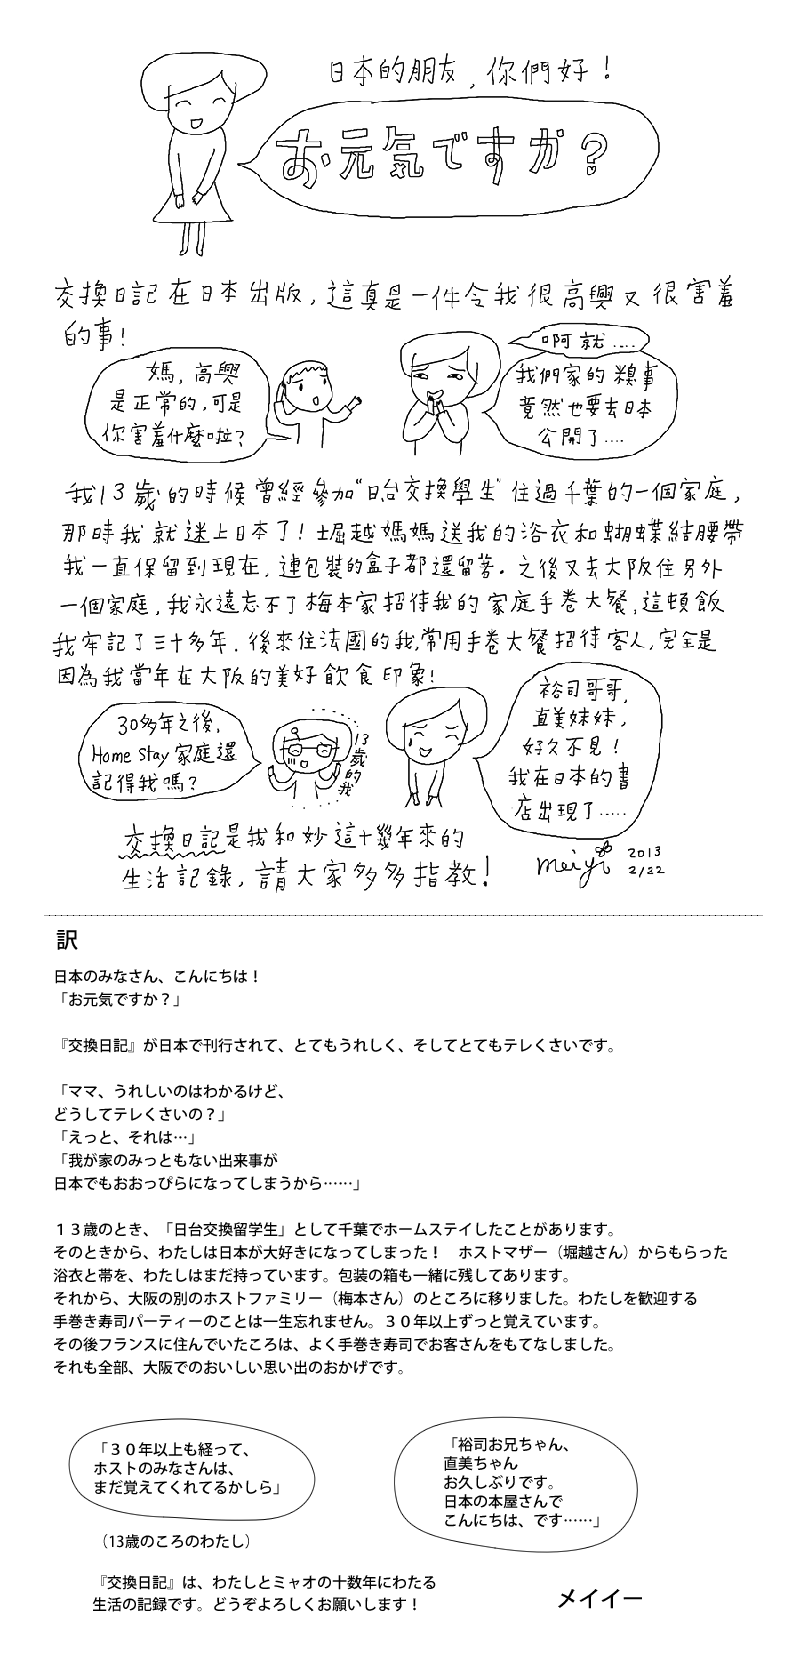 日本的朋友，你們好！
お元気ですか？
交換日記在日本出版，這真是一件令我很高興又很害羞
的事！
媽，高興
是正常的，可是
你害羞什麼啦？
啊就……
我們家的糗事
竟然也要去日本
公開了……
我13歲的時候曾經參加“日台交換學生”住過千葉的一個家庭，
那時我就迷上日本了！堀越媽媽送我的浴衣和蝴蝶結腰帶
我一直保留到現在，連包裝的盒子都還留著。之後又去大阪住另外
一個家庭，我永遠忘不了梅本家招待我的家庭手卷大餐，這頓飯
我牢記了三十多年，後來住法國的我，常用手卷大餐招待客人，完全是
因為我當年在大阪的美好飲食印象！
30多年之後，
Home Stay家庭還
記得我嗎？
13歲的我
裕司哥哥，
直美妹妹，
好久不見！
我在日本的書
店出現了……
交換日記是我和妙這十幾年來的
生活記錄，請大家多多指教！
meiyi 2013
2/22
訳
日本のみなさん、こんにちは！
「お元気ですか？」
『交換日記』が日本で刊行されて、とてもうれしく、そしてとてもテレくさいです。
「ママ、うれしいのはわかるけど、
どうしてテレくさいの？」
「えっと、それは…」
「我が家のみっともない出来事が
日本でもおおっぴらになってしまうから……」
１３歳のとき、「日台交換留学生」として千葉でホームステイしたことがあります。
そのときから、わたしは日本が大好きになってしまった！　ホストマザー（堀越さん）からもらった
浴衣と帯を、わたしはまだ持っています。包装の箱も一緒に残してあります。
それから、大阪の別のホストファミリー（梅本さん）のところに移りました。わたしを歓迎する
手巻き寿司パーティーのことは一生忘れません。３０年以上ずっと覚えています。
その後フランスに住んでいたころは、よく手巻き寿司でお客さんをもてなしました。
それも全部、大阪でのおいしい思い出のおかげです。
「３０年以上も経って、
ホストのみなさんは、
まだ覚えてくれてるかしら」
（13歳のころのわたし）
「裕司お兄ちゃん、
直美ちゃん
お久しぶりです。
日本の本屋さんで
こんにちは、です……」
『交換日記』は、わたしとミャオの十数年にわたる
生活の記録です。どうぞよろしくお願いします！
メイイー